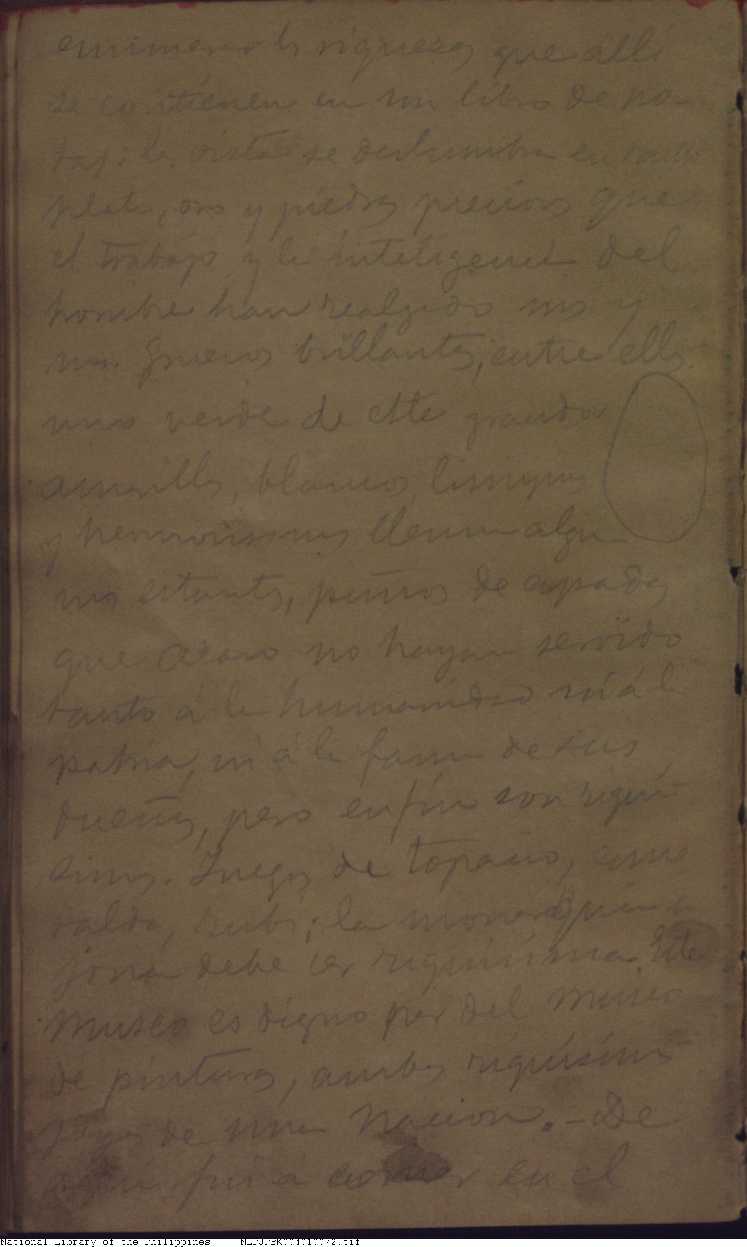 enumerar ls riquezas que alli
se contienen en un libro de no
tas: la vista se deslumbra en tanta
plata, oro y piedras preciosas que
el trabajo y la inteligencia del
hombre han realzado uno y
brillantes, entre ells
uno verde de este grandor
amarillos, blancos, limpios
y hermosisimos llenan algu
nos estantes, puños de espadas
que acaso no hayan servido
tanto á la humanidad ni á l
patria, ni á la fama de sus
dueños, pero enfin son riquí
simos. Juegos de topacio, esme
ralda, rubi; la monarquia
jona debe ser riquisima. Este
Museo es digno par del Museo
de pinturas, ambos riquísims
joyas de una Nacion. - De
fui a comer en el
National Library of the Philippines